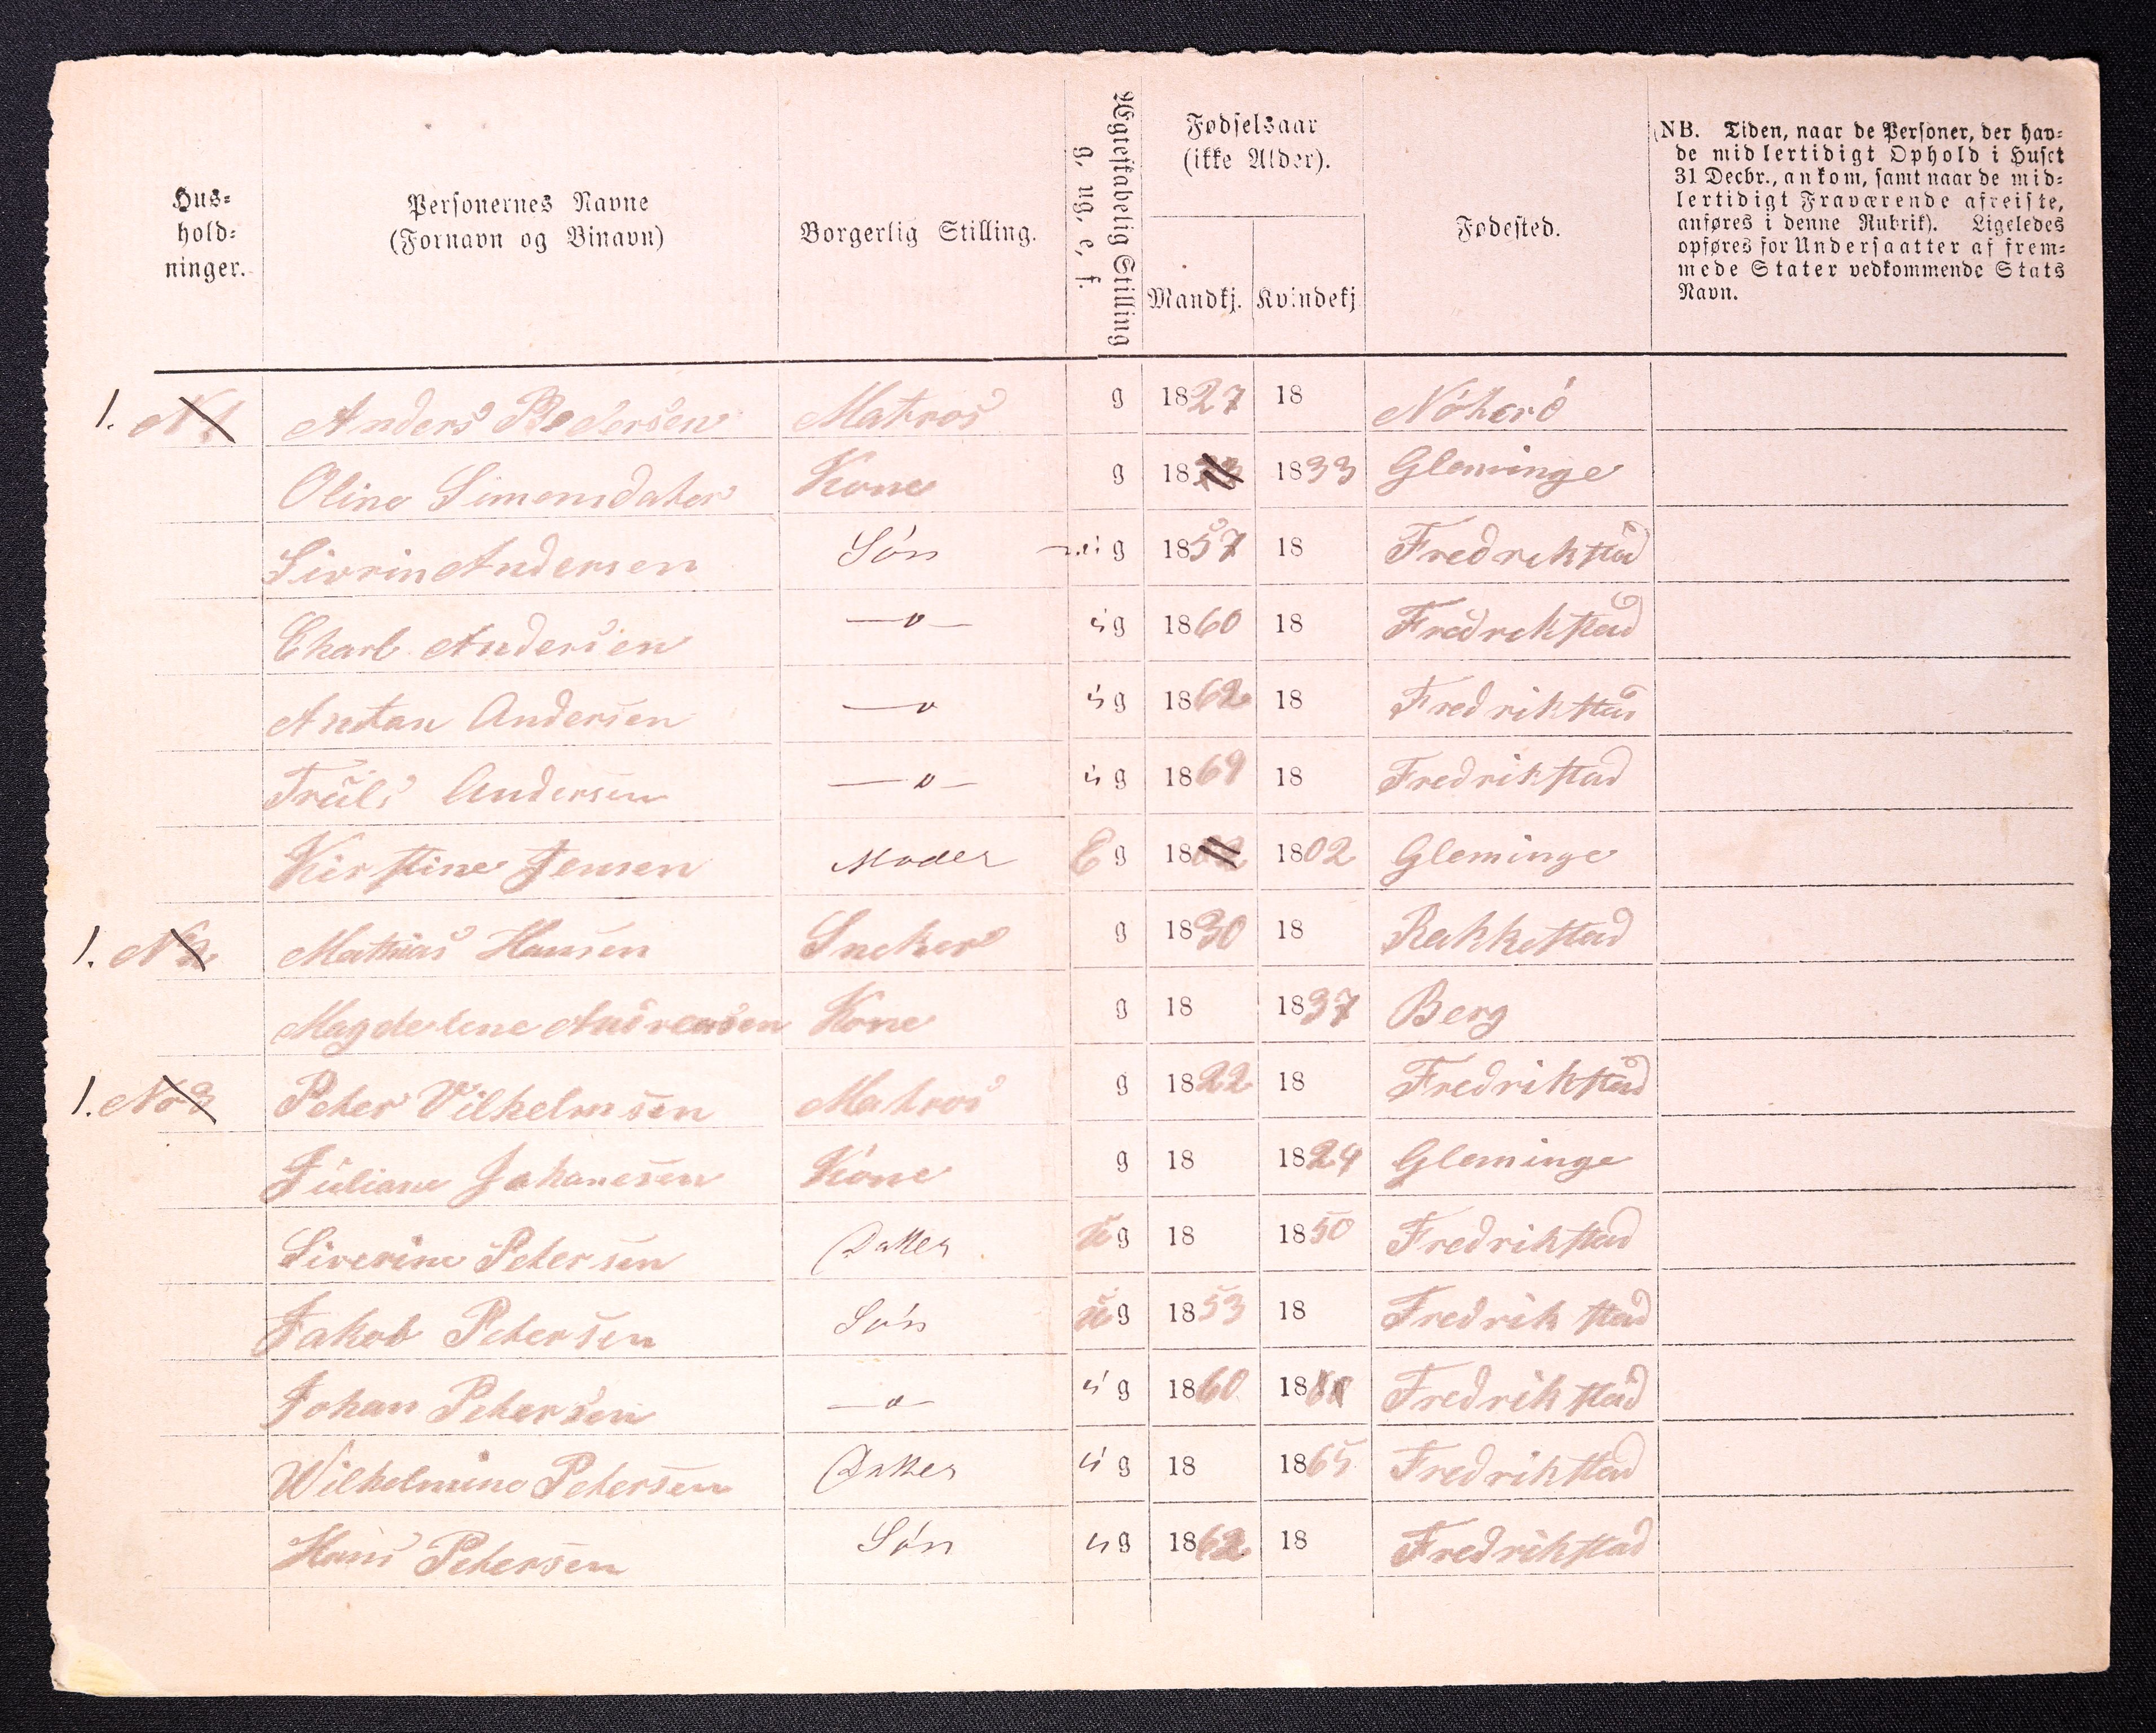 Hus-
hold-
ninger.
Personernes Navne
(Fornavn og Binavn)
Borgerlig Stilling.
Ægteskabelig Stilling
g, ug, e, f.
Fødselsaar
(ikke Alder).
Mandkj. Kvindekj
Fødested.
(NB. Tiden, naar de Personer, der hav-
de midlertidigt Ophold i Huset
31 Decbr., ankom, samt naar de mid-
lertidigt Fraværende afreiste,
anføres i denne Rubrik). Ligeledes
opføres for Undersaatter af frem-
mede Stater vedkommende Stats
Navn.
1. N1 Anders Pedersen Matros g 1827 18 Nöterö
Oline Simonsdater Kone g 18 1833 Gleminge
Sivrin Andersen Sön ug 1857 18 Fredrekstad
Charl Andersen —o— ug 1860 18 Fredrekstad
Antan Andersen —o ug 1862 18 Fredrikstad
Trüls Andersen —o— ug 1869 18 Fredrikstad
Kirstine Jensen Moder E g 1802 1802 Gleminge
1. N2 Mathias Hansen Sneker g 1830 18 Rakkestad
Magdelene Andreasen Kone g 18 1837 Berg
1. No3 Peter Vilhelmsen Matros g 1822 18 Fredrikstad
Jüliane Johanesen Kone g 18 1824 Gleminge
Siverine Petersen Datter ug 18 1850 Fredrikstad
Jakob Petersen Sön ug 1853 18 Fredrikstad
Johan Petersen —o— ug 1860 18 Fredrikstad
Wilhelmine Petersen Datter ug 18 1865 Fredrikstad
Hans Petersen Sön ug 1862 18 Fredrikstad